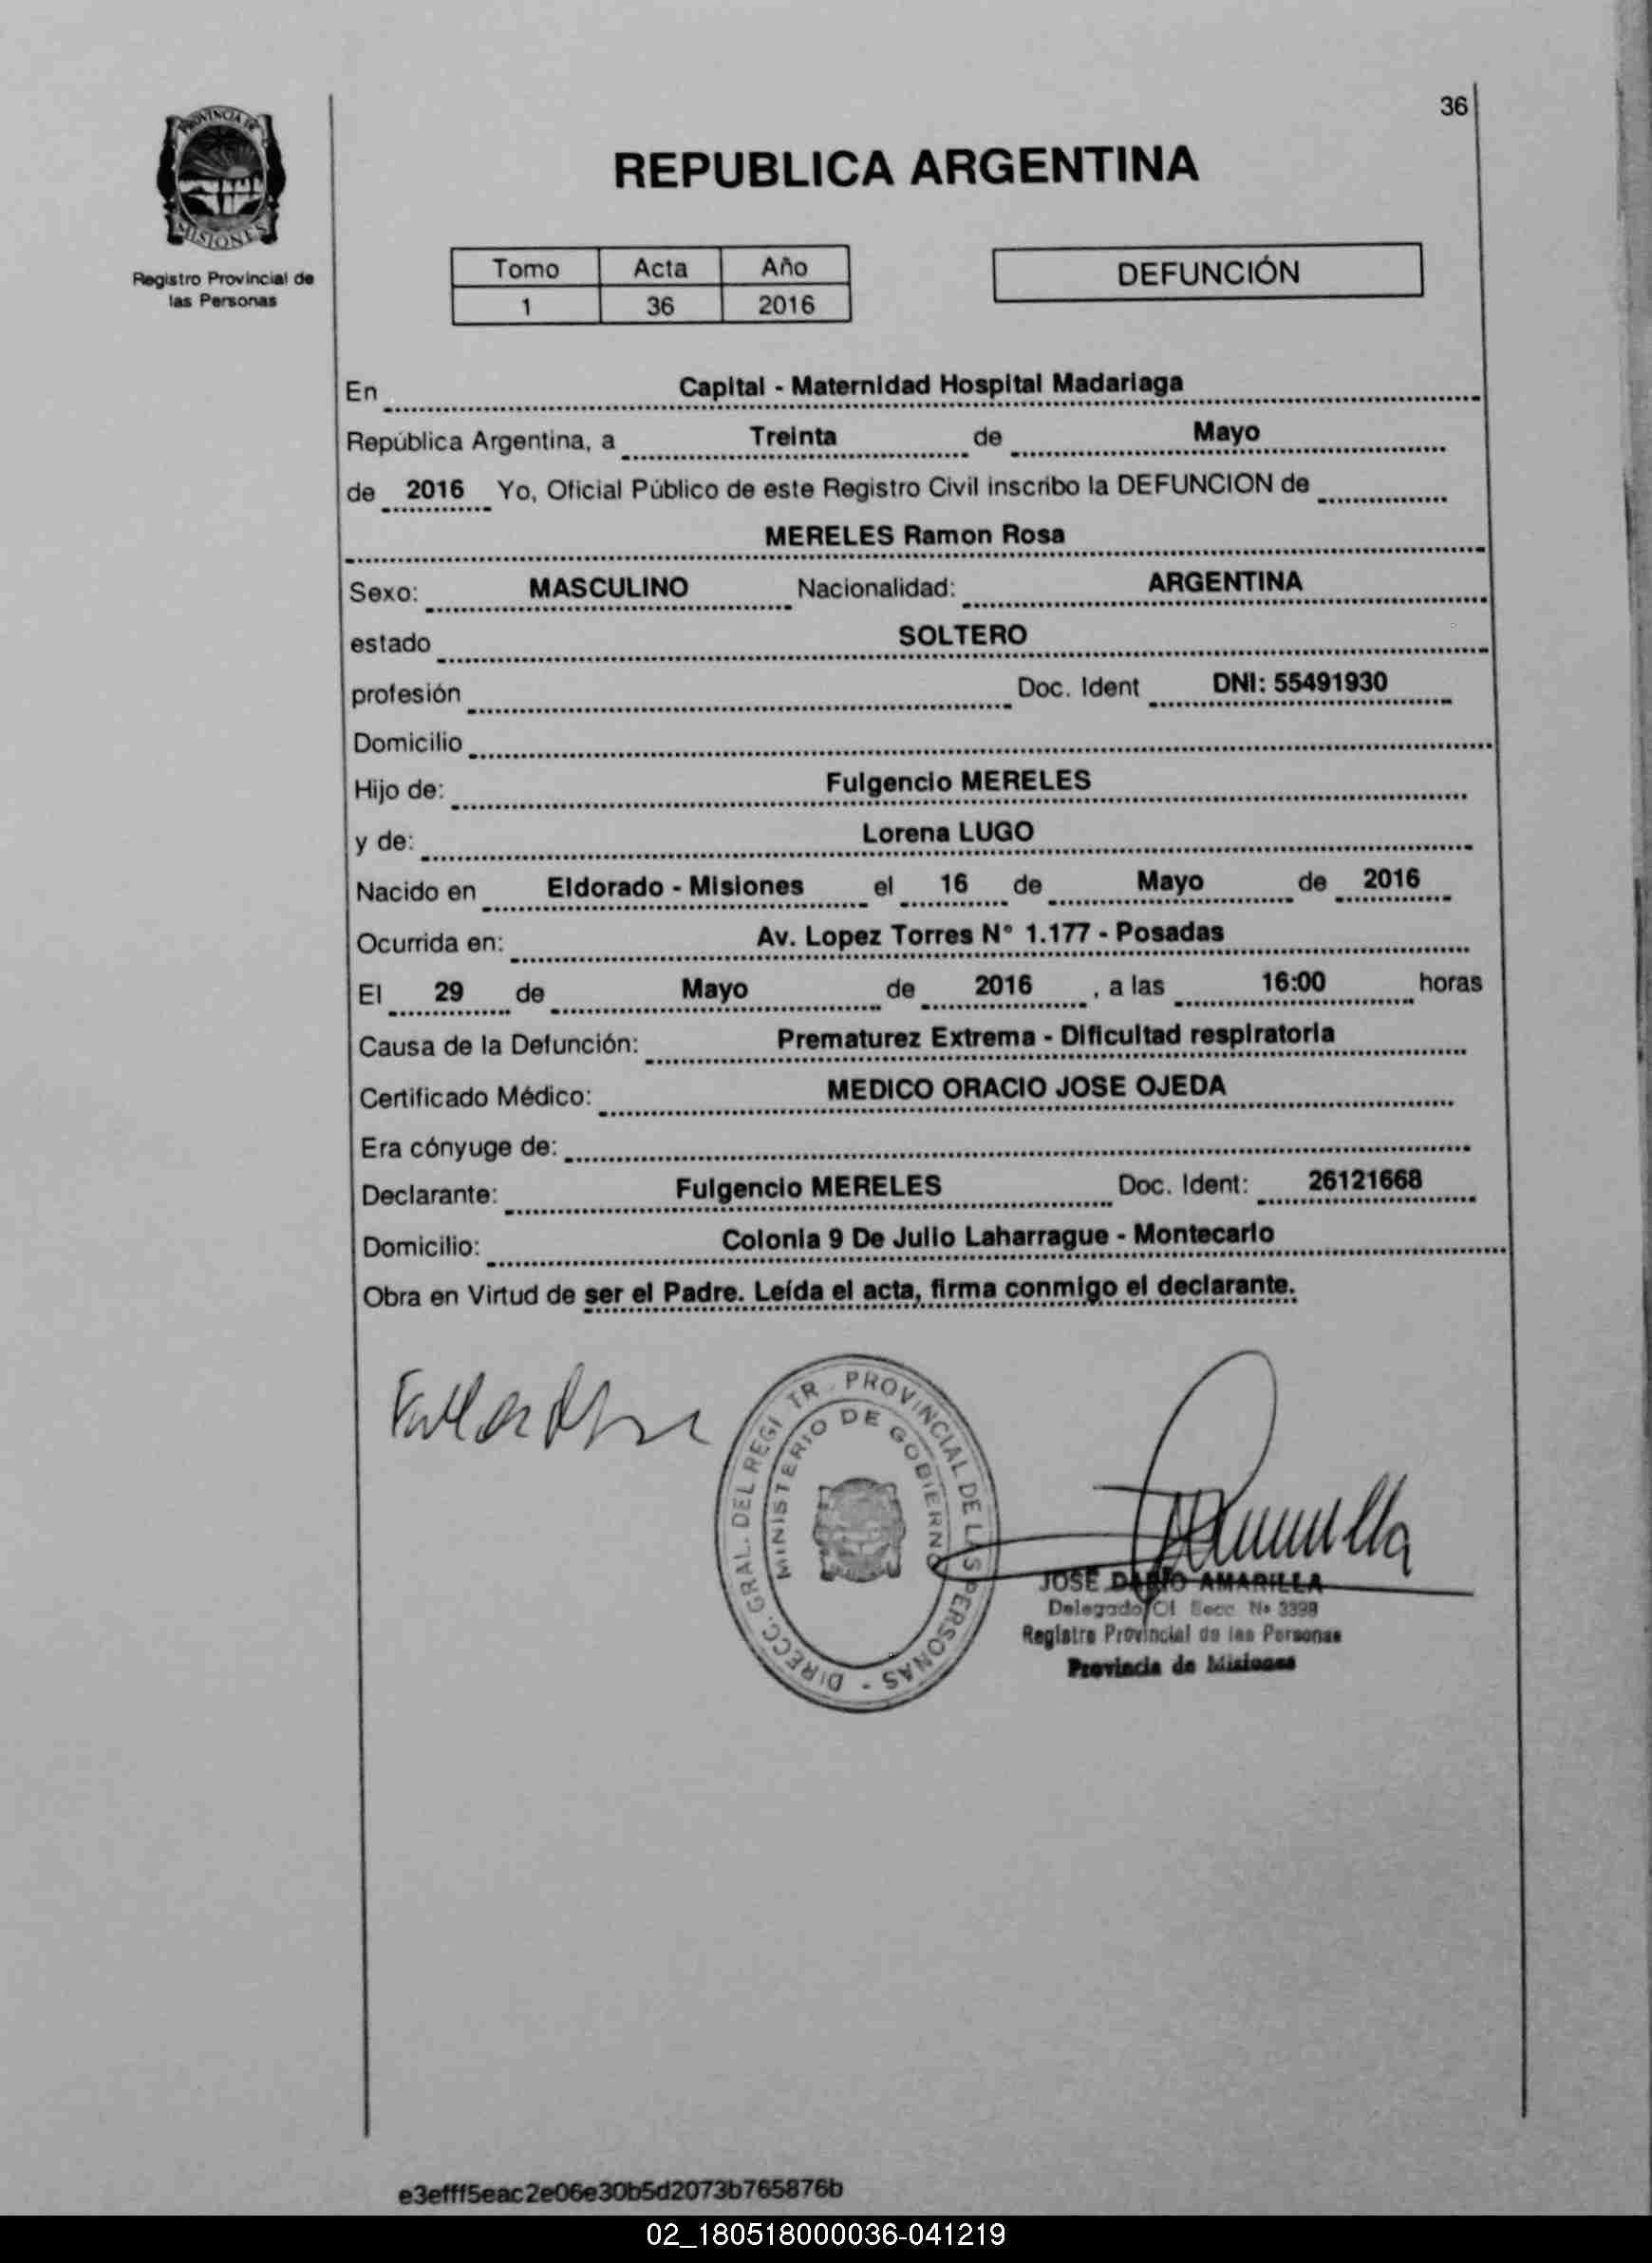 36
PROVINCIA DE
MISIONES
Registro Provincial de
las Personas
REPUBLICA ARGENTINA
Tomo Acta Año
1 36 2016
DEFUNCIÓN
En Capital - Maternidad Hospital Madariaga
República Argentina, a Treinta de Mayo
de 2016 Yo, Oficial Público de este Registro Civil inscribo la DEFUNCION de
MERELES Ramon Rosa
Sexo: MASCULINO Nacionalidad: ARGENTINA
estado SOLTERO
profesión Doc. Ident DNI: 55491930
Domicilio
Hijo de: Fulgencio MERELES
y de: Lorena LUGO
Nacido en Eldorado - Misiones el 16 de Mayo de 2016
Ocurrida en: Av. Lopez Torres N° 1.177 - Posadas
El 29 de Mayo de 2016 , a las 16:00 horas
Causa de la Defunción: Prematurez Extrema - Dificultad respiratoria
Certificado Médico: MEDICO ORACIO JOSE OJEDA
Era cónyuge de:
Declarante: Fulgencio MERELES Doc. Ident: 26121668
Domicilio: Colonia 9 De Julio Laharrague - Montecarlo
Obra en Virtud de ser el Padre. Leída el acta, firma conmigo el declarante.
DIRECC. GRAL. DEL REGI TR. PROVINCIAL DE LAS PERSONAS -
MINISTERIO DE GOBIERNO
JOSE DARIO AMARILLA
Delegado Secc. Nº 3398
Registro Provincial de las Personas
Provincia de Misiones
e3efff5eac2e06e30b5d2073b765876b
02_180518000036-041219